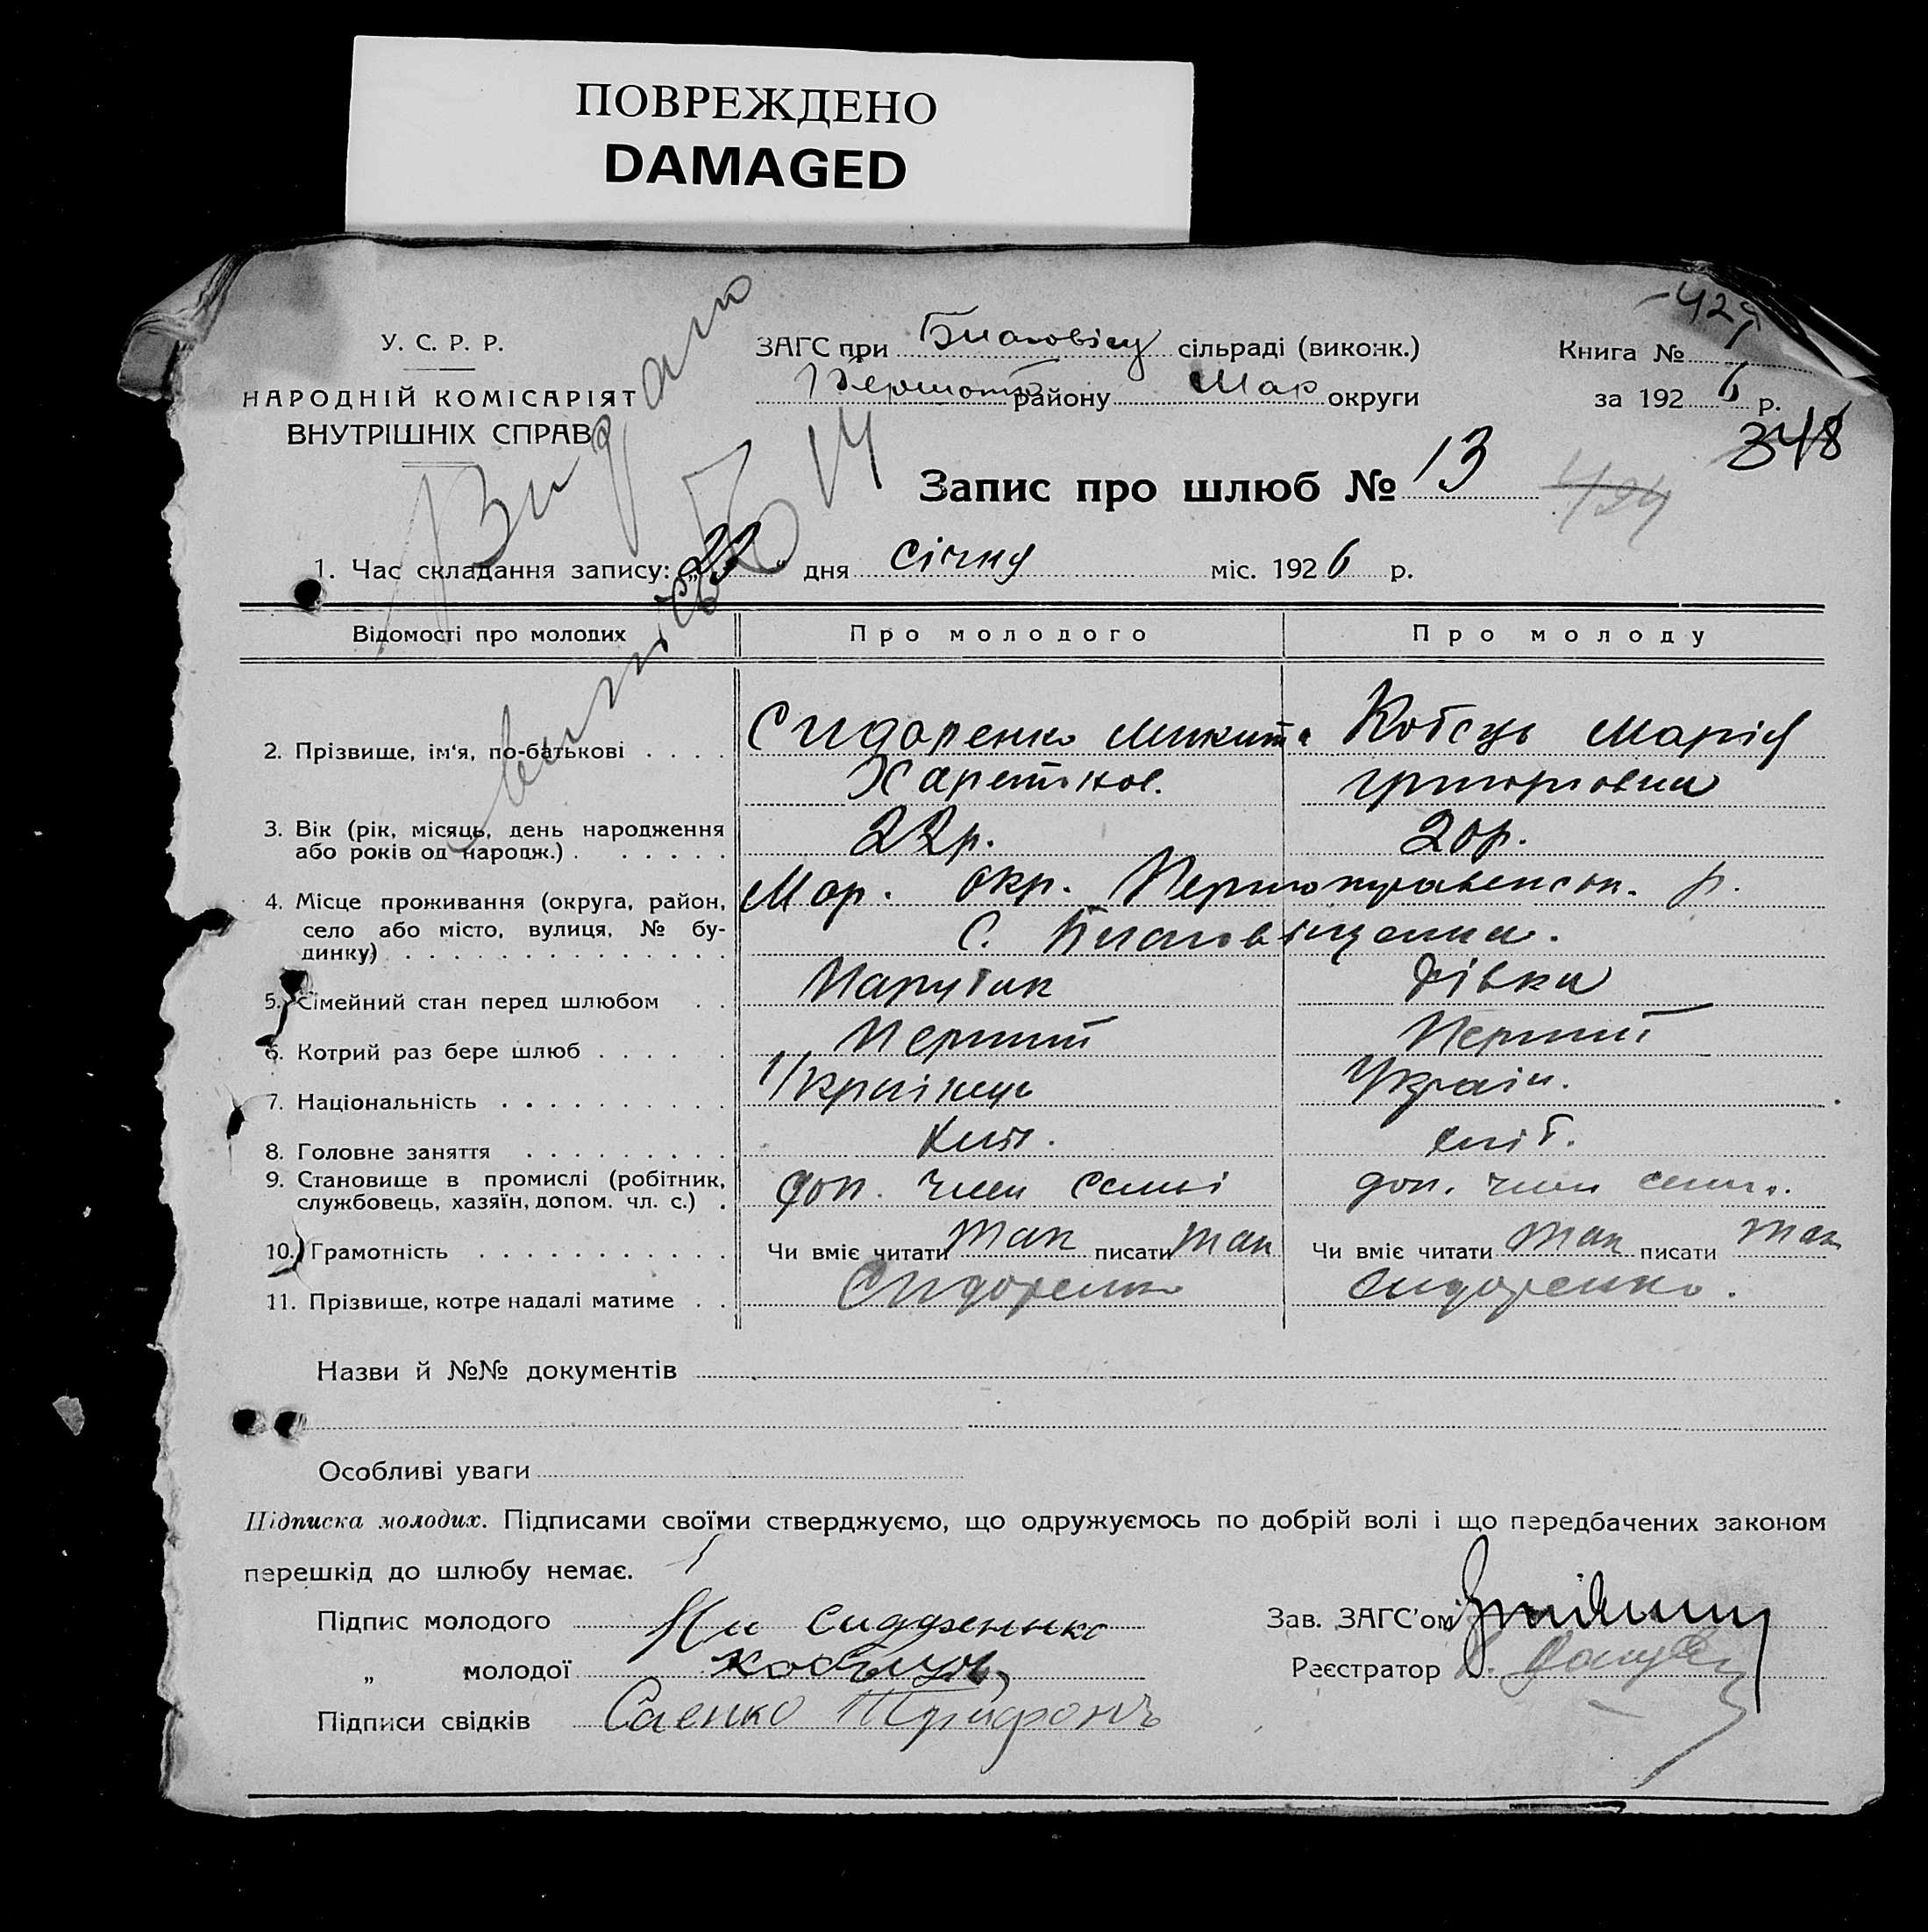 ПОВРЕЖДЕНО
DAMAGED
У. С. Р. Р.
НАРОДНІЙ КОМІСАРІЯТ
ВНУТРІШНІХ СПРАВ
Видано
ЗАГС при Благовіщ сільраді (виконк.)
району Мар округи
Книга №
за 1926 р.
348
Запис про шлюб № 13
424
1. Час складання запису: „ “ дня січня міс. 1926 р.
Відомості про молодих Про молодого Про молоду
2. Прізвище, ім‘я, по-батькові . . . . Сидоренко Микита Кобець Марія
Харетонов. Григоровна
3. Вік (рік, місяць, день народження
або років од народж.) . . . . . . 22р. 20р.
4. Місце проживання (округа, район,
село або місто, вулиця, № бу-
динку) . . . . . . . . . . . . . .
Мар. окр. р.
с. Благовіщенка.
5. Сімейний стан перед шлюбом . . Парубок Дівка
6. Котрий раз бере шлюб . . . . . Перший Перший
7. Національність . . . . . . . . . . Українець Україн.
8. Головне заняття . . . . . . . . . хліб. хліб.
9. Становище в промислі (робітник,
службовець, хазяїн, допом. чл. с.) . доп. член семьі доп. член
10. Грамотність . . . . . . . . . . . Чи вміє читати так писати так Чи вміє читати так писати так
11. Прізвище, котре надалі матиме . . Сидоренко Сидоренко.
Назви й №№ документів
Особливі уваги
Підписка молодих. Підписами своїми стверджуємо, що одружуємось по добрій волі і що передбачених законом
перешкід до шлюбу немає.
Підпис молодого
Зав. ЗАГС’ом
„ молодої
Реєстратор
Підписи свідків Саенко Трифонъ